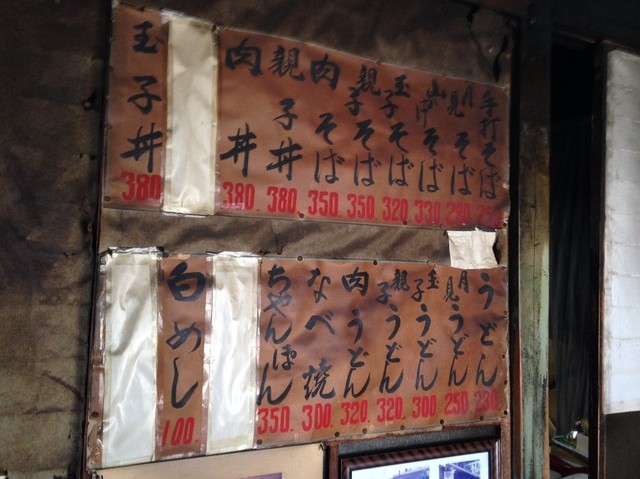 手打そば
月見そば 280.
山中そば 330.
玉子そば 320.
親子そば 350.
肉そば 350.
親子丼 380.
肉丼 380.
玉子丼 380
うどん 230.
月見うどん 250.
玉子うどん 300.
親子うどん 320.
肉うどん 320.
なべ焼 300.
ちゃんぽん 350.
白めし 100.